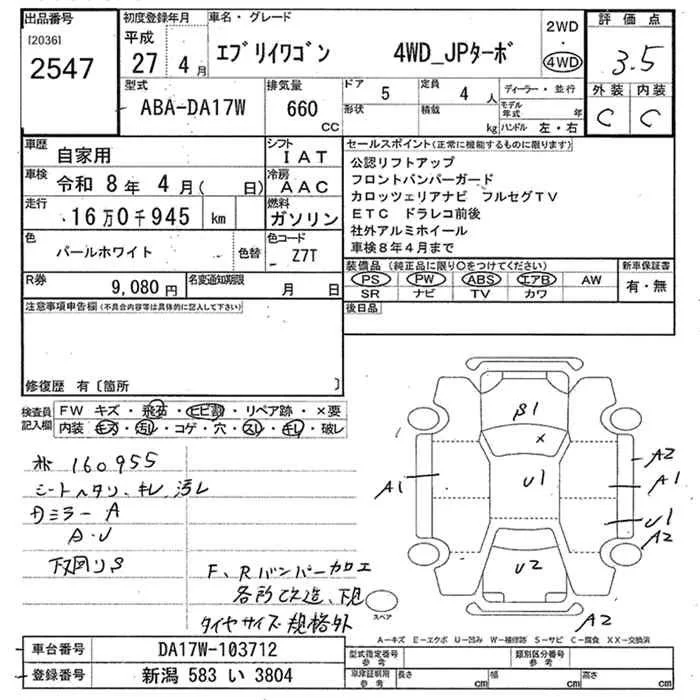 出品番号
[2036]
2547
初度登録年月
平成
27 4 月
車名・グレード
エブリイワゴン 4WD_JPターボ
2WD
・
4WD
評価点
3.5
外装 内装
C C
型式
ABA-DA17W
排気量
660
CC
ドア
5
形状
定員
4 人
積載
kg
ディーラー・並行
モデル年式 年
ハンドル 左・右
車歴
自家用
車検 令和 8 年 4 月 ( 日)
走行
16 万 0 千 945 km
色
パールホワイト
色替
シフト
I AT
冷房
A AC
燃料
ガソリン
色コード
Z7T
セールスポイント(正常に機能するものに限ります)
公認リフトアップ
フロントバンパーガード
カロッツェリアナビ フルセグTV
ETC ドラレコ前後
社外アルミホイール
車検8年4月まで
R券
9,080 円
名変通知期限
月 日
装備品(純正品に限り○をつけてください)
PS PW ABS エアB AW
SR ナビ TV カワ
新車保証書
有・無
注意事項申告欄(不具合内容等は具体的に記入して下さい)
後日品
修復歴 有〔箇所 〕
検査員
記入欄
FW キズ・飛石・ヒビ割・リペア跡・×要
内装 キズ・汚レ・コゲ・穴・スレ・キレ・破レ
160955
シートヘタリ、キレ、汚レ
ミラー A
A・U
下廻りS
F、Rバンパー加工
各所改造、下見
タイヤサイズ規格外
β1
×
U1
U2
A1
A2
A1
U1
A2
A2
スペア
A－キズ E－エクボ U－凹み W－補修跡 S－サビ C－腐食 XX－交換済
車台番号
DA17W-103712
登録番号
新潟 583 い 3804
型式指定番号
参考
類別区分番号
参考
車庫証明用
参考
長さ cm
幅 cm
高さ cm